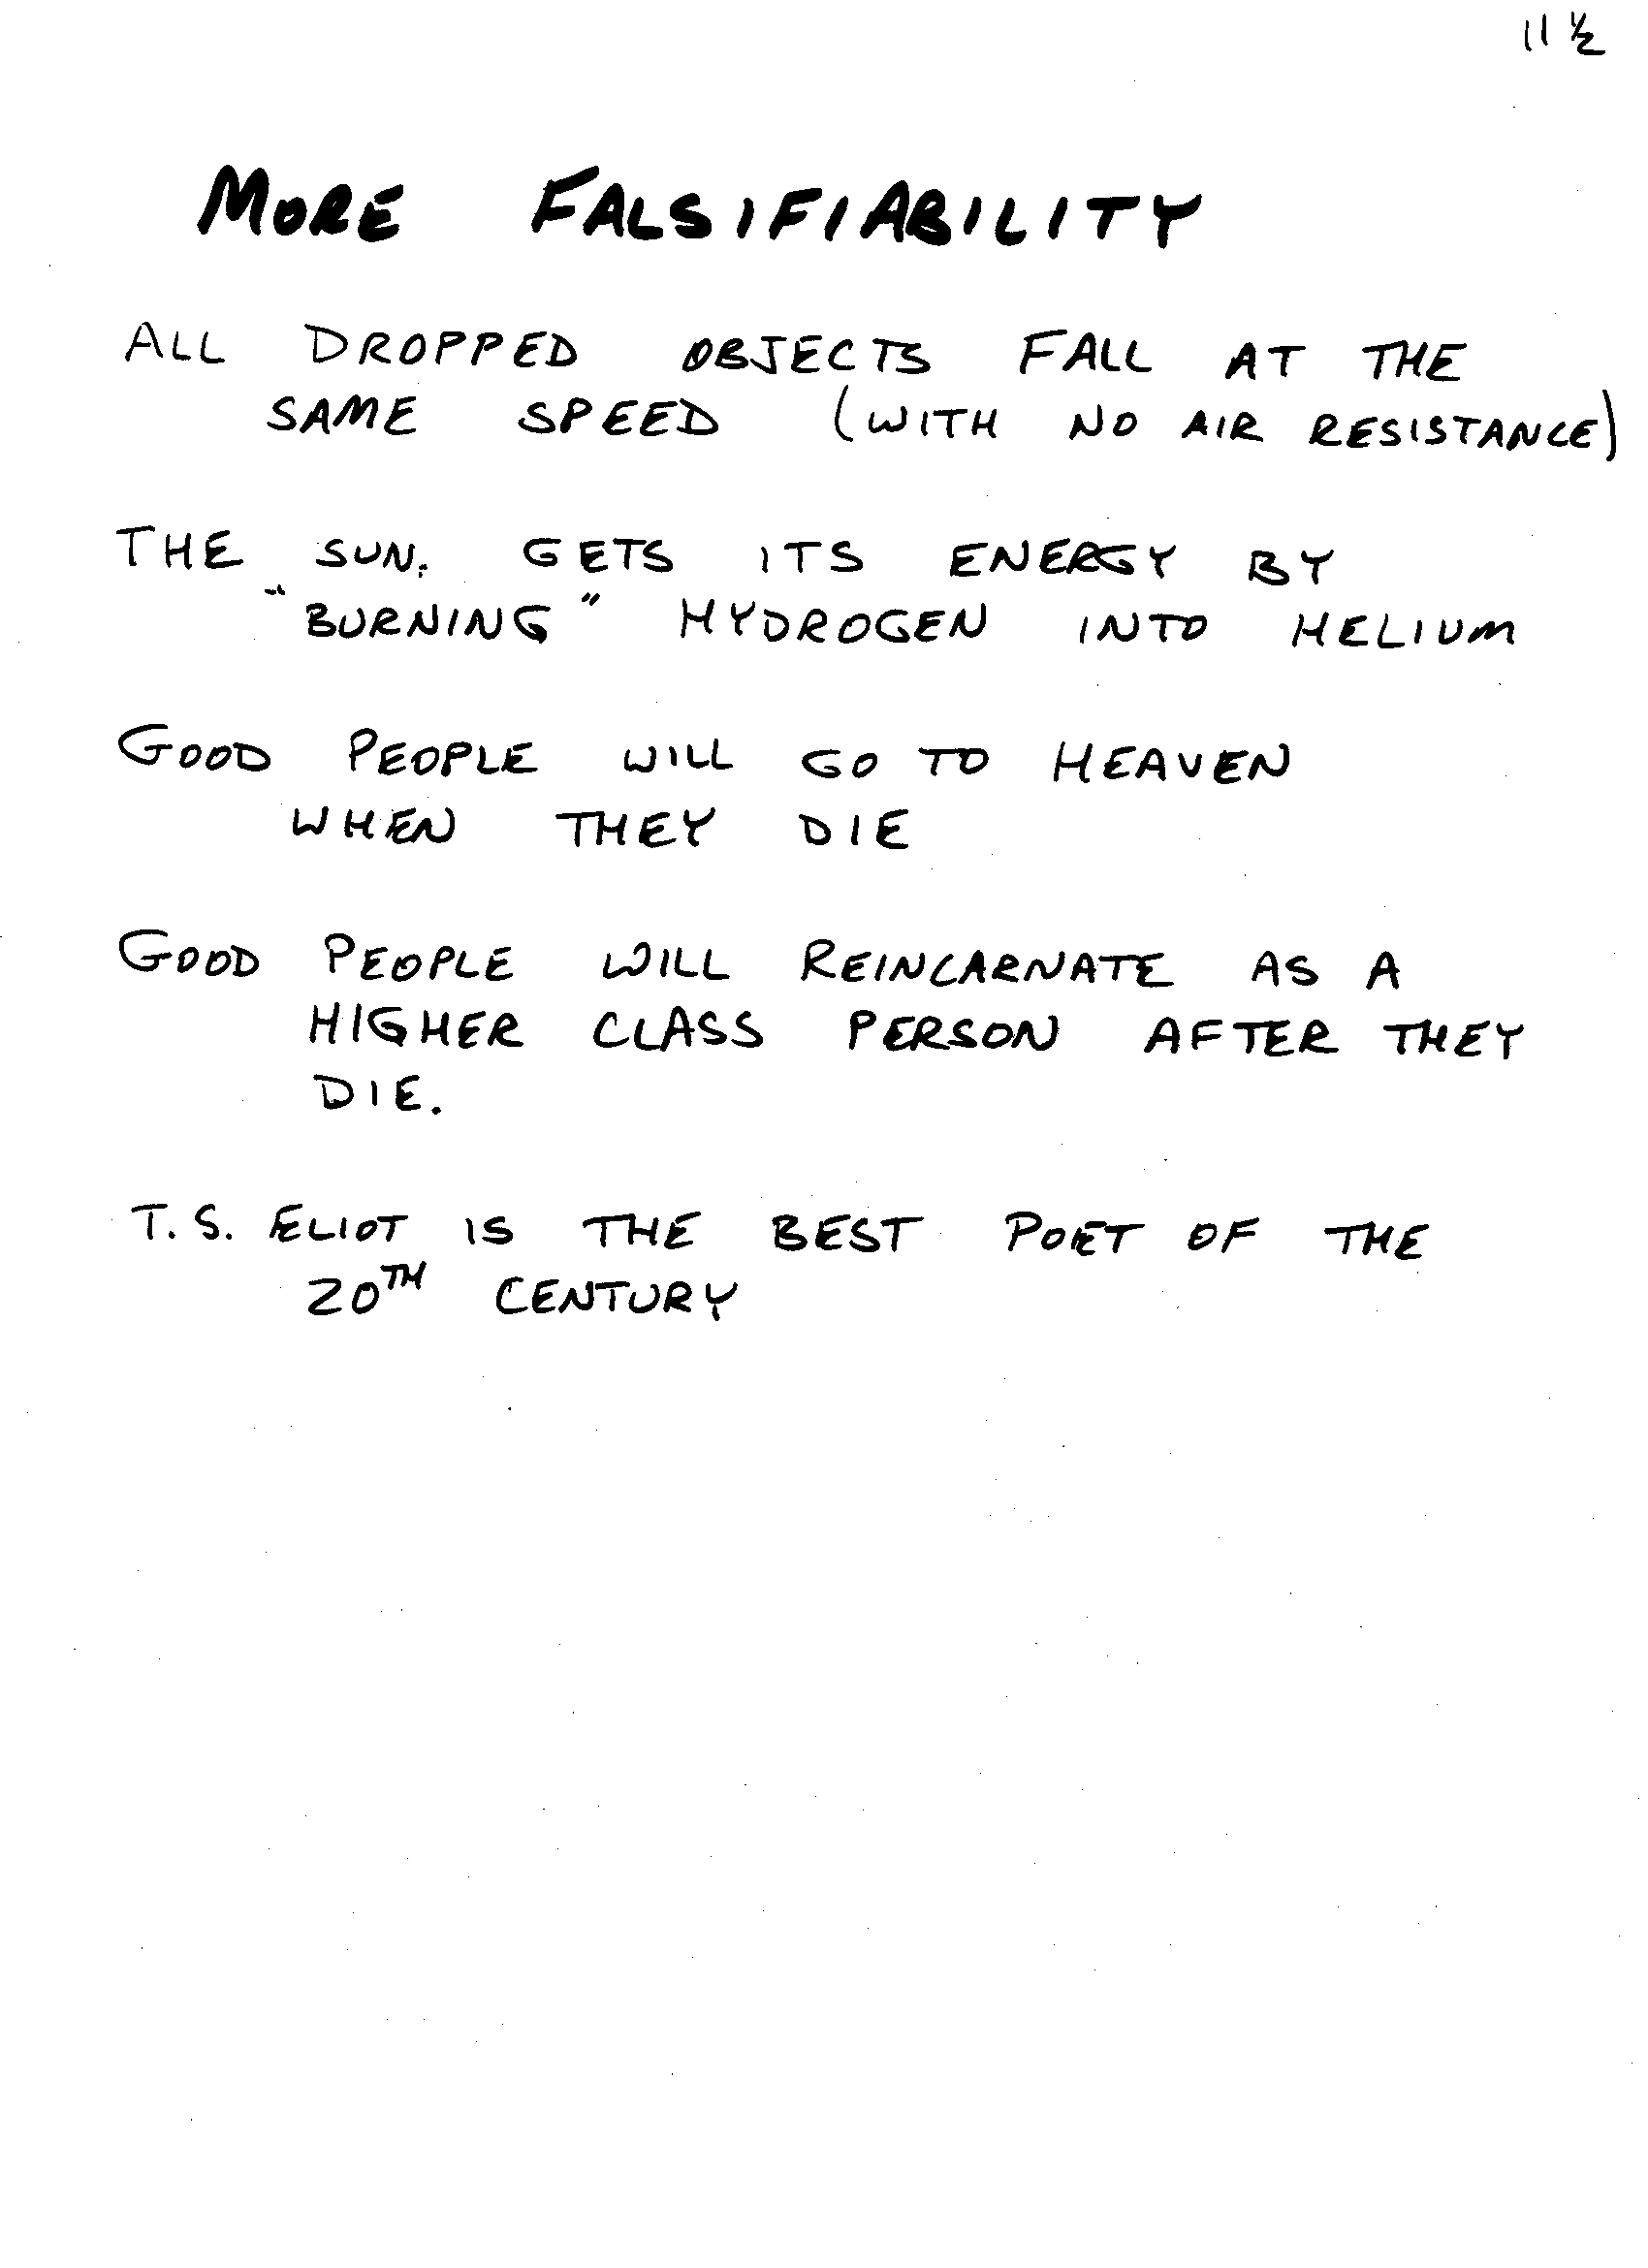 11 ½
MORE FALSIFIABILITY
ALL DROPPED OBJECTS FALL AT THE
SAME SPEED (WITH NO AIR RESISTANCE)
THE SUN. GETS ITS ENERGY BY
"BURNING" HYDROGEN INTO HELIUM
GOOD PEOPLE WILL GO TO HEAVEN
WHEN THEY DIE
GOOD PEOPLE WILL REINCARNATE AS A
HIGHER CLASS PERSON AFTER THEY
DIE.
T. S. ELIOT IS THE BEST POET OF THE
20TH CENTURY